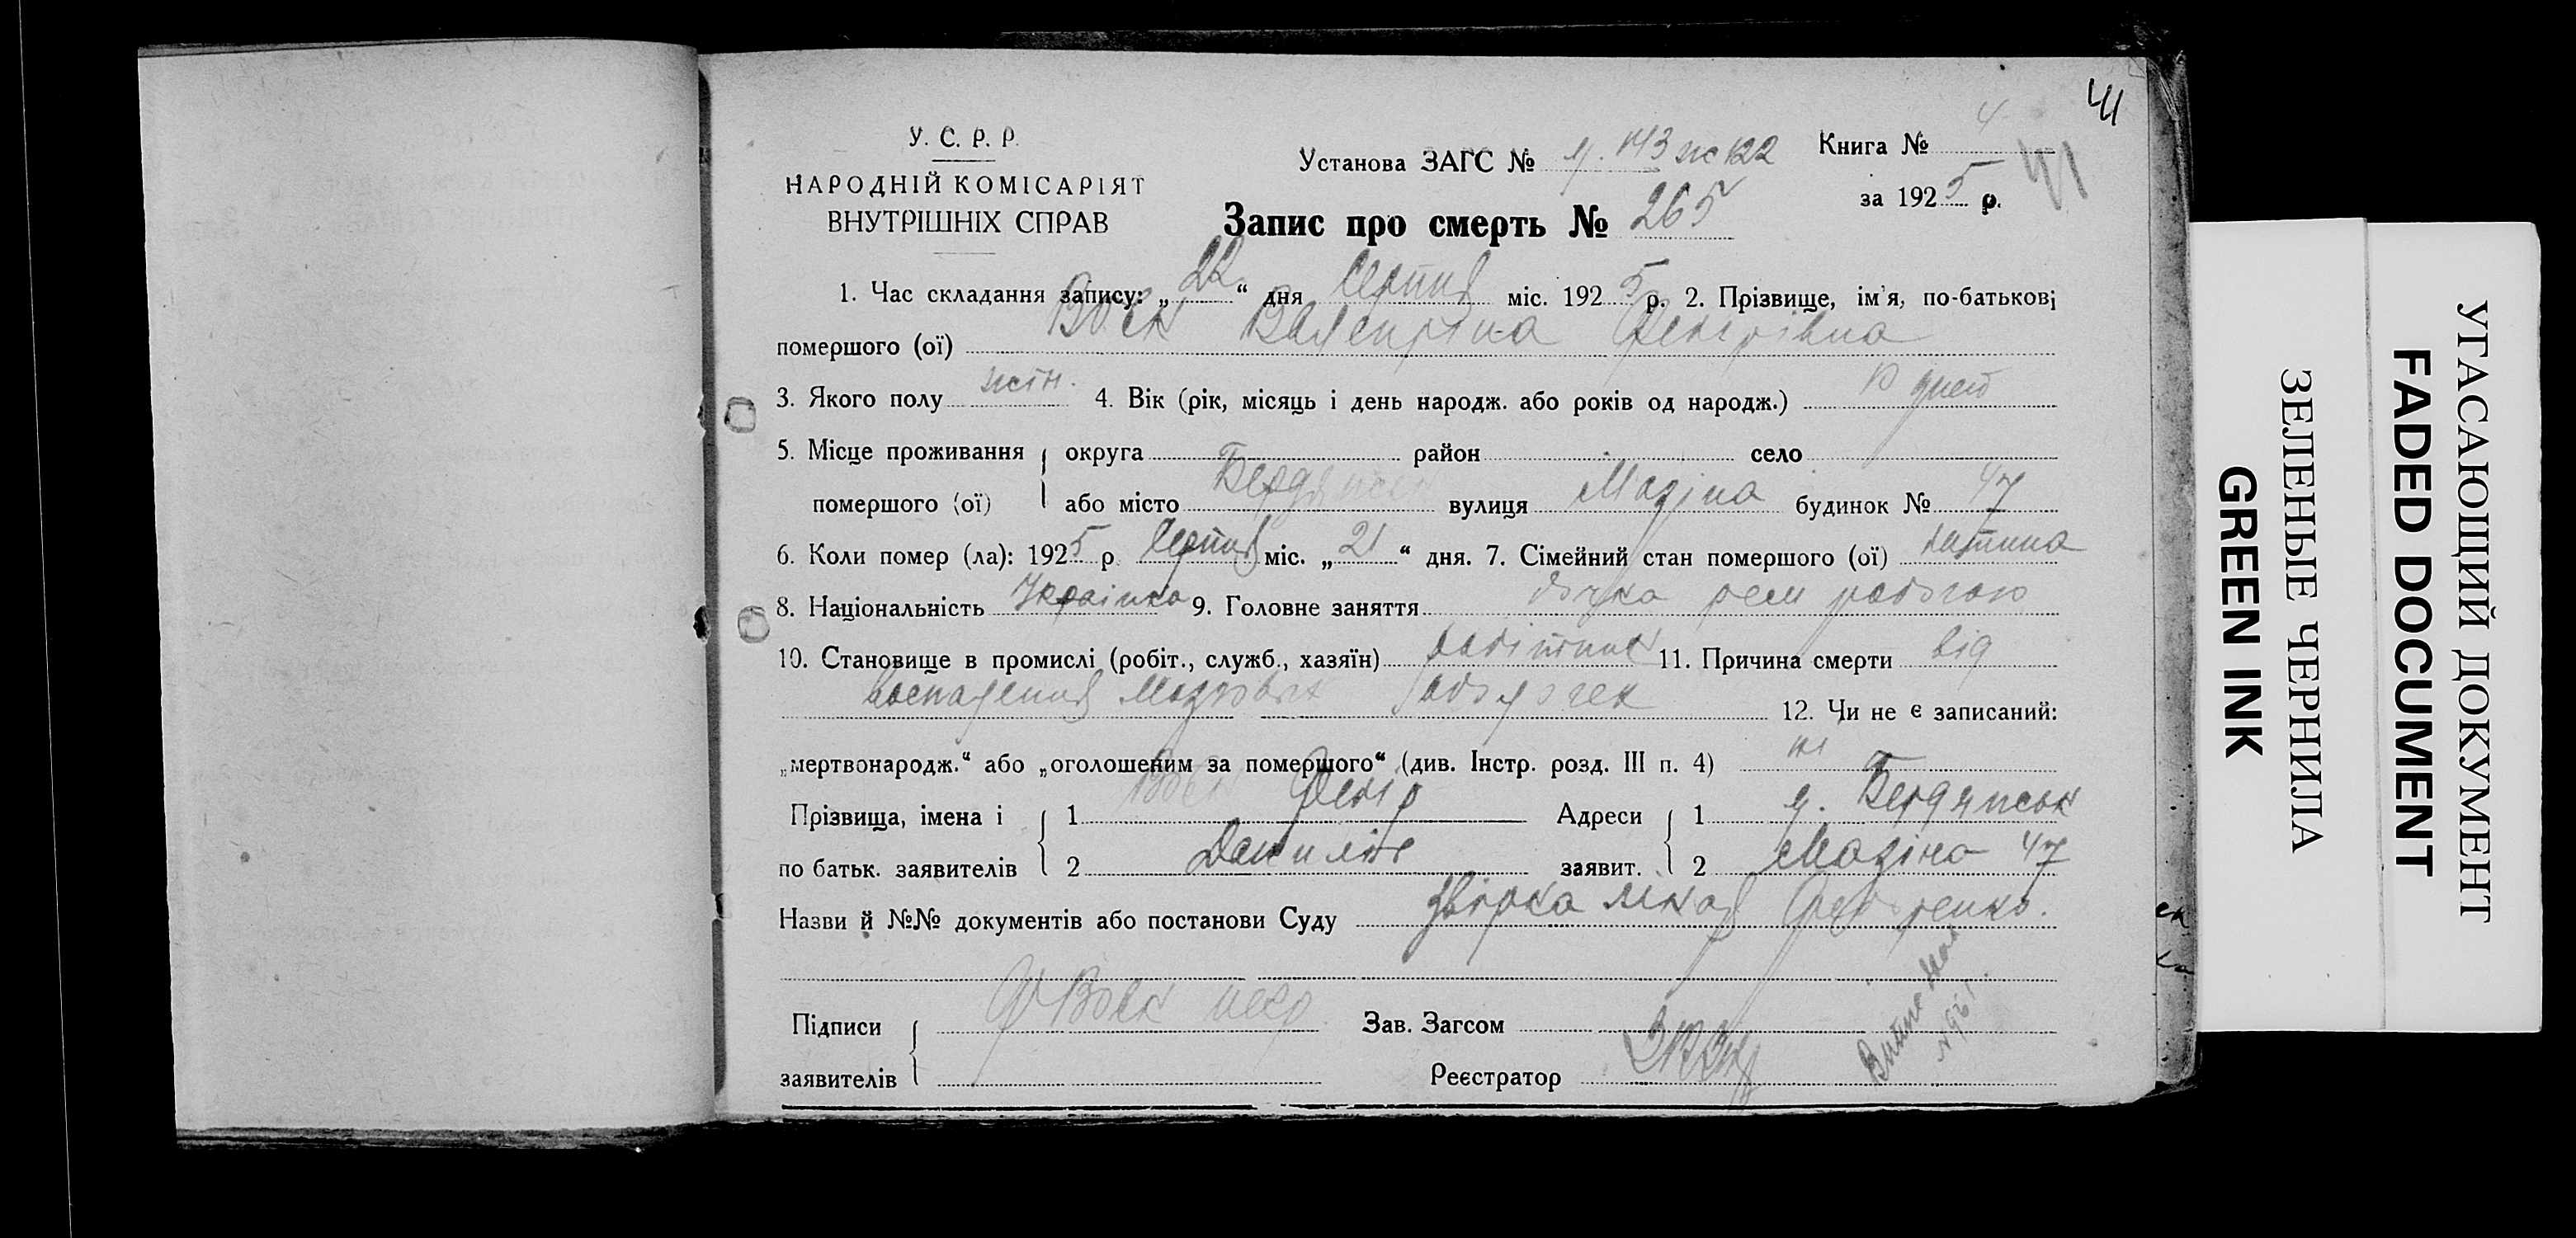 41
У. С. Р. Р.
НАРОДНІЙ КОМІСАРІЯТ
ВНУТРІШНІХ СПРАВ
Установа ЗАГС №
Книга № 4
41
за 1925 р.
Запис про смерть № 265
1. Час складання запису: „22“ дня Серпня міс. 1925 р. 2. Прізвище, ім'я, по-батькові
помершого (ої) Воєк Валентіна Федірівна
3. Якого полу жін. 4. Вік (рік, місяць і день народж. або років од народж.) 10 дней
5. Місце проживання округа район село
помершого (ої) або місто Бердянськ вулиця Мазіна будинок № 47
6. Коли помер (ла): 1925 р. Серпня міс. „21“ дня. 7. Сімейний стан помершого (ої) дитина
8. Національність Українка 9. Головне заняття дочка
10. Становище в промислі (робіт., служб., хазяїн) робітник 11. Причина смерти від
воспаления Мозговых оболочек 12. Чи не є записаний:
„мертвонародж.“ або „оголошеним за помершого“ (див. Інстр. розд. III п. 4) ні
Прізвища, імена і 1 Воєк Федір Адреси 1 м. Бердянськ
по батьк. заявителів 2 Данилов заявит. 2 Мазіна 47
Назви й №№ документів або постанови Суду лікаря Федоренко.
Підписи Ф Воєк Зав. Загсом
заявителів Реєстратор
УГАСАЮЩИЙ ДОКУМЕНТ
FADED DOCUMENT
ЗЕЛЕНЫЕ ЧЕРНИЛА
GREEN INK